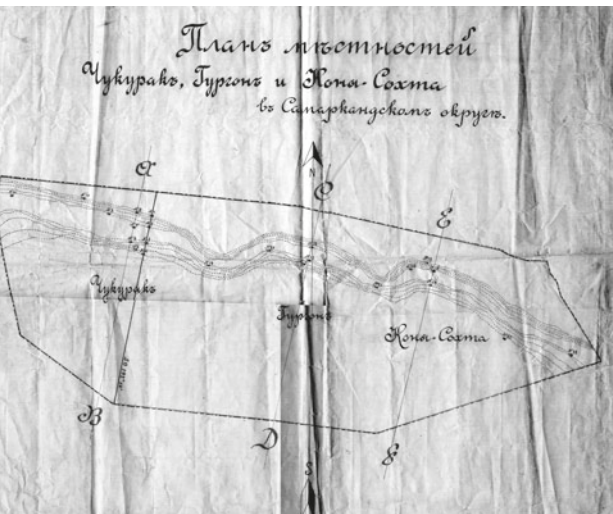 Планъ мѣстностей
Чукуракъ, Гургонъ и Коны-Сохта
въ Самаркандскомъ округѣ.
A
C
N
E
Чукуракъ
Гургонъ
Коны-Сохта
B
D
F
S